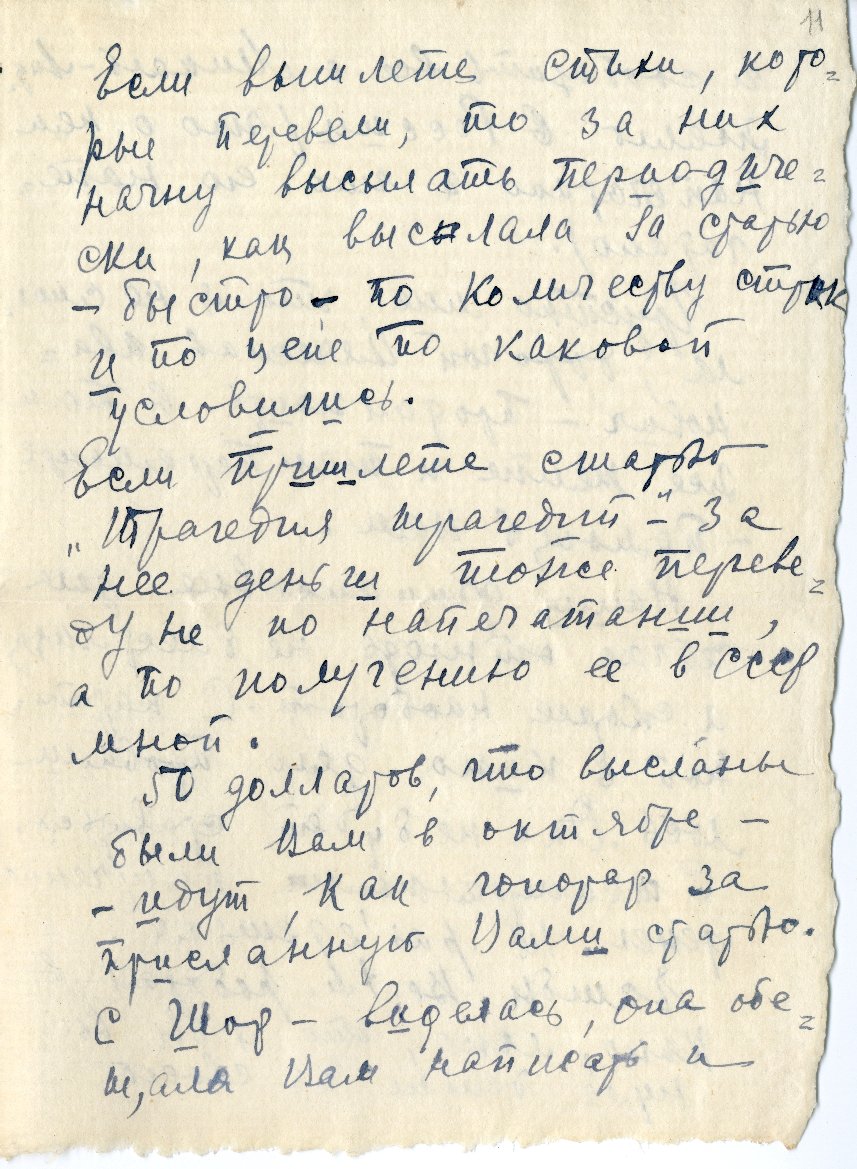 11
Если вышлете стихи, кото=
рые перевели, то за них
начну высылать периодиче=
ски, как высылала за статью
- быстро - по количеству строк
и по цене по каковой
условились.
Если пришлете статью
„Трагедия трагедий" - за
нее деньги тоже переве=
ду не по напечатании,
а по получению ее в СССР
мной.
50 долларов, что высланы
были Вам в октябре -
- идут, как гонорар за
присланную Вами статью.
С Шор - виделась, она обе=
щала Вам написать и